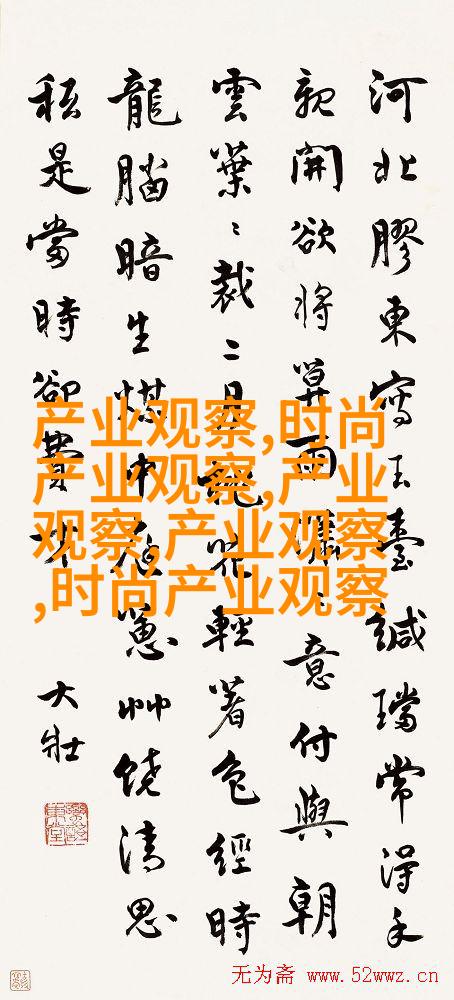 河北膠東寫玉臺緘璫常得手
親開欲將算雨〻意付與朝
雲葉〻裁二月花輕著色經時
龍腦暗生煤中蕙艸饒清思
秖是當時卻費才
大壯
产业观察,时尚
产业观察,产业
观察,产业观察
,时尚产业观察
无为斋 www.52wwz.cn